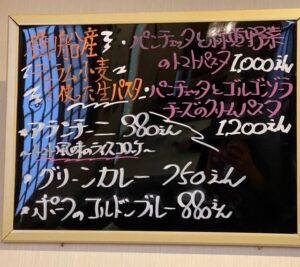 産
小麦
使った生パスタ
・パンチェッタと野菜
のトマトパスタ 1,000えん
・パンチェッタとゴルゴンゾラ
チーズのクリームパスタ
1,200えん
・アランチーニ 880えん
風味のライスコロッケ
・グリーンカレー 750えん
・ポークのコルドンブルー 880えん